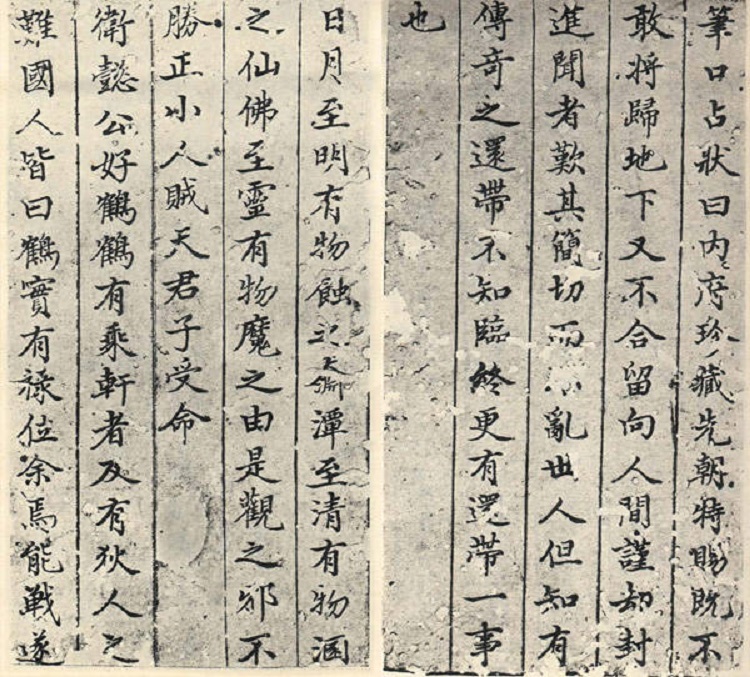 筆口占狀曰内府珍藏先朝特賜既不
敢将歸地下又不合留向人間謹却封
進聞者歎其簡切而不亂世人但知有
傳奇之還帶不知臨終更有還帶一事
也
日月至明有物蝕之潭至清有物溷
之仙佛至靈有物魔之由是觀之邪不
勝正小人賊天君子受命
衛懿公好鶴鶴有乘軒者及有狄人之
難國人皆曰鶴實有祿位余焉能戰遂